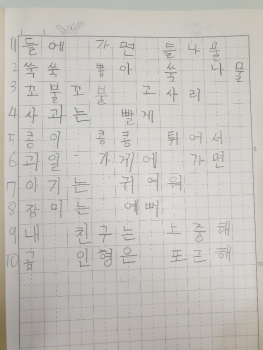 1 들에 가면 들나물
2 쑥쑥 뽑아 쑥나물
3 꼬불꼬불 고사리
4 사과는 빨게
5 콩이 콩콩 튀어서
6 과일 가게에 가면
7 아기는 귀여워
8 장미는 예뻐
9 내 친구는 소중해
10 곰 인형은 포근해